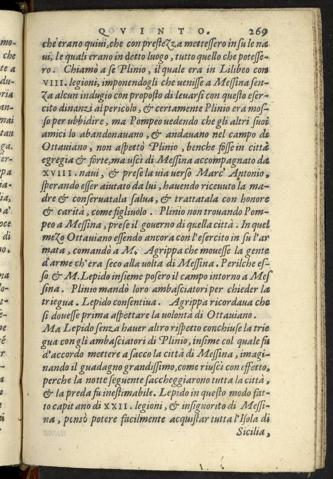 QVINTO. 269
che erano quiui, che con prestezza mettessero in su le na
ui, le quali erano in detto luogo, tutto quello che potesse-
ro. Chiamò a se Plinio, il quale era in Lilibeo con
VIII. legioni, imponendogli che venisse a Messina sen-
za alcun indugio con proposito di leuarsi con questo eser-
cito dinanzi al pericolo, & certamente Plinio era mos-
so per vbbidire, ma Pompeo vedendo che gli altri suoi
amici lo abandonauano, & andauano nel campo di
Ottauiano, non aspettò Plinio, benche fosse in città
egregia & forte, ma uscì di Messina accompagnato da
XVIII. naui, & prese la via verso Marc' Antonio,
sperando esser aiutato da lui, hauendo riceuuto la ma-
dre & conseruatala salua, & trattatala con honore
& carità, come figliuolo. Plinio non trouando Pom-
peo a Messina, prese il gouerno di quella città. In quel
mezo Ottauiano essendo ancora con l'esercito in su l'ar
mata, comandò a M. Agrippa che mouesse la gente
d'arme ch'era seco alla volta di Messina. Perilche es-
so & M. Lepido insieme posero il campo intorno a Mes
sina. Plinio mandò loro ambasciatori per chieder la
triegua. Lepido consentiua. Agrippa ricordaua che
si douesse prima aspettare la volontà di Ottauiano.
Ma Lepido senza hauer altro rispetto conchiuse la trie
gua con gli ambasciatori di Plinio, insime col quale fù
d'accordo mettere a sacco la città di Messina, imagi-
nando il guadagno grandissimo, come riuscì con effetto,
perche la notte seguente saccheggiarono tutta la città,
& la preda fù inestimabile. Lepido in questo modo fat-
to capitano di XXII. legioni, & insignorito di Messi-
na, pensò potere facilmente acquistar tutta l'Isola di
Sicilia,